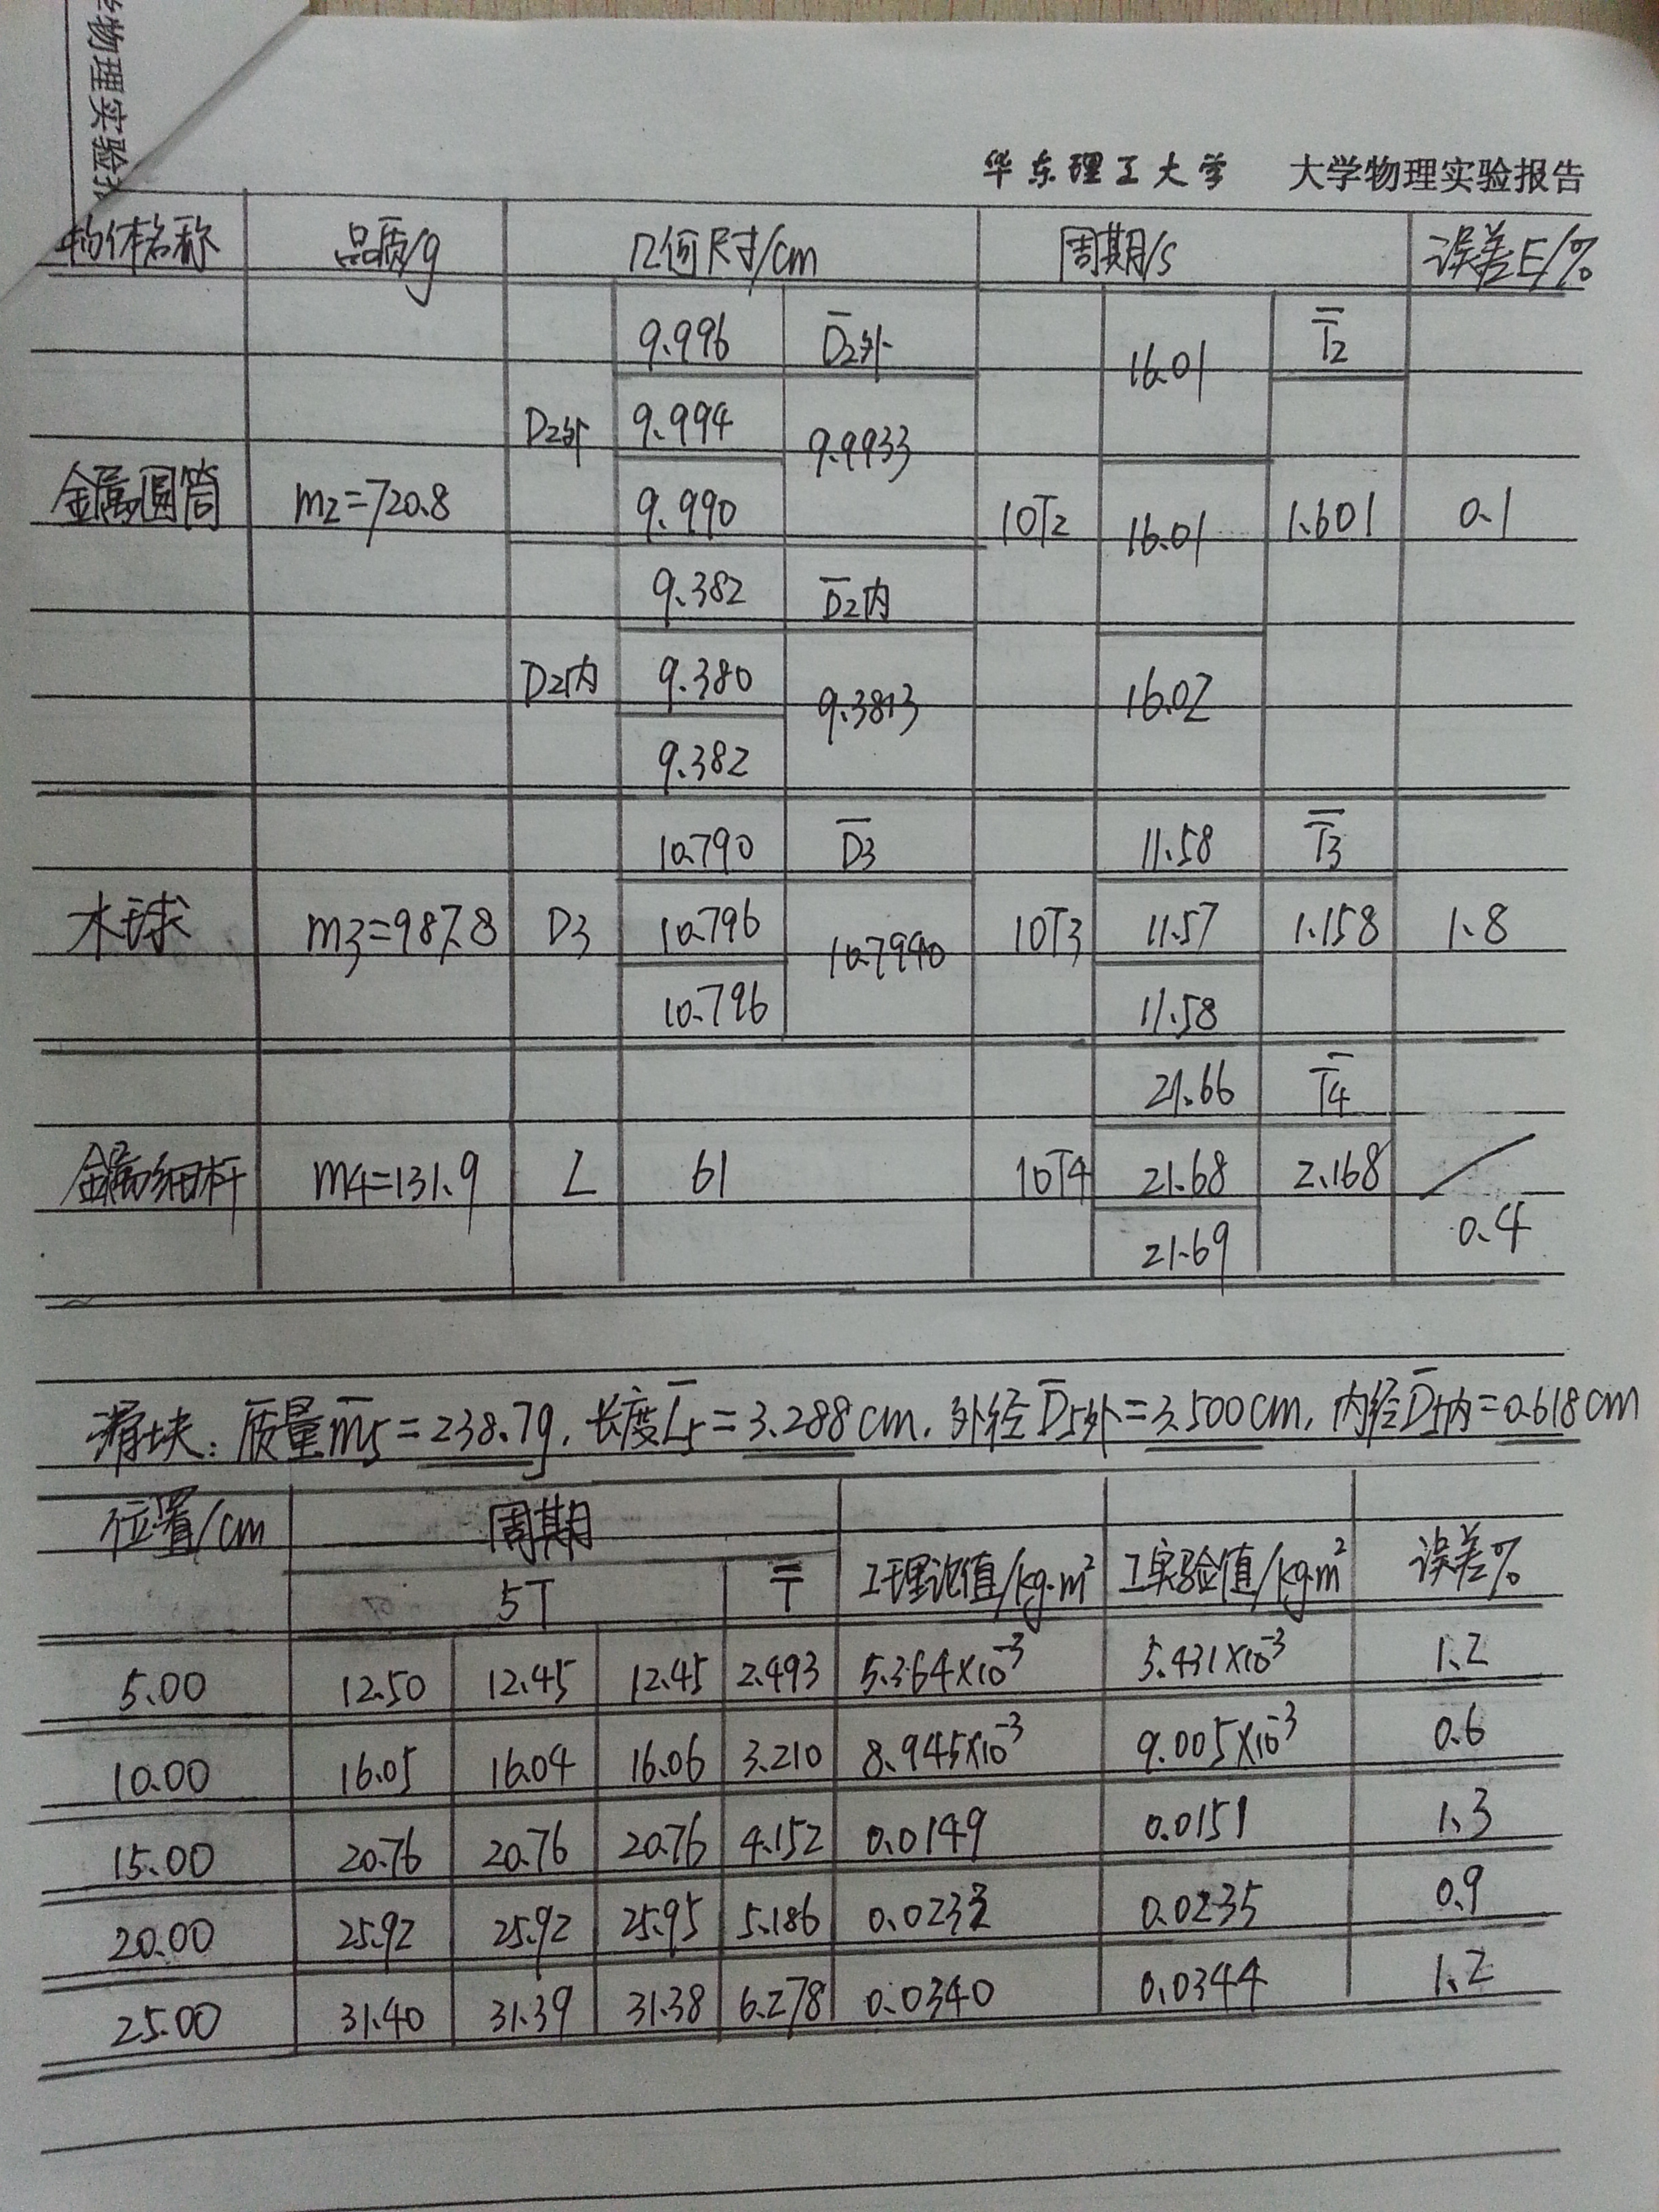 大学物理实验报
华东理工大学 大学物理实验报告
物体名称 品质/g 几何尺寸/cm 周期/s 误差E/%
9.996 D̅2外 16.01 T̅2
D2外 9.994 9.9933
金属圆筒 m2=720.8 9.990 10T2 16.01 1.601 0.1
9.382 D̅2内
D2内 9.380 9.3813 16.02
9.382
10.790 D̅3 11.58 T̅3
木球 m3=987.8 D3 10.796 10.7940 10T3 11.57 1.158 1.8
10.796 11.58
21.66 T̅4
金属细杆 m4=131.9 L 61 10T4 21.68 2.168
21.69 0.4
滑块: 质量m̅5=238.7g, 长度L̅5=3.288cm, 外径D̅5外=3.500cm, 内径D̅5内=0.618cm
位置/cm 周期
5T T̅ I理论值/kg·m² I实验值/kg·m² 误差%
5.00 12.50 12.45 12.45 2.493 5.364×10⁻³ 5.431×10⁻³ 1.2
10.00 16.05 16.04 16.06 3.210 8.945×10⁻³ 9.005×10⁻³ 0.6
15.00 20.76 20.76 20.76 4.152 0.0149 0.0151 1.3
20.00 25.92 25.92 25.95 5.186 0.0233 0.0235 0.9
25.00 31.40 31.39 31.38 6.278 0.0340 0.0344 1.2